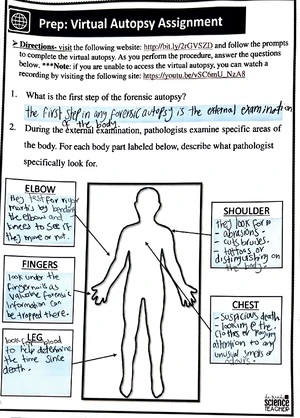 Prep: Virtual Autopsy Assignment
➢ Directions- visit the following website: http://bit.ly/2rGVSZD and follow the prompts
to complete the virtual autopsy. As you perform the procedure, answer the questions
below. ***Note: if you are unable to access the virtual autopsy, you can watch a
recording by visiting the following site: https://youtu.be/vSC6mU_NzA8
1. What is the first step of the forensic autopsy?
the first step in any forensic autopsy is the external examination
of the body.
2. During the external examination, pathologists examine specific areas of the
body. For each body part labeled below, describe what pathologist
specifically look for.
ELBOW
they test for rigor
mortis by bending
the elbow and
knees to see if
they move or not.
FINGERS
look under the
fingernails as
valuable forensic
information can
be trapped there.
LEG
look for blood
to help determine
the time since
death.
SHOULDER
they look for
- abrasions.
- cuts bruises.
- tattoos or
distinguishing on
the body.
CHEST
- suspicious death
- looking @ the
clothes or
attention to any
unusual smells or
science
TEACHER